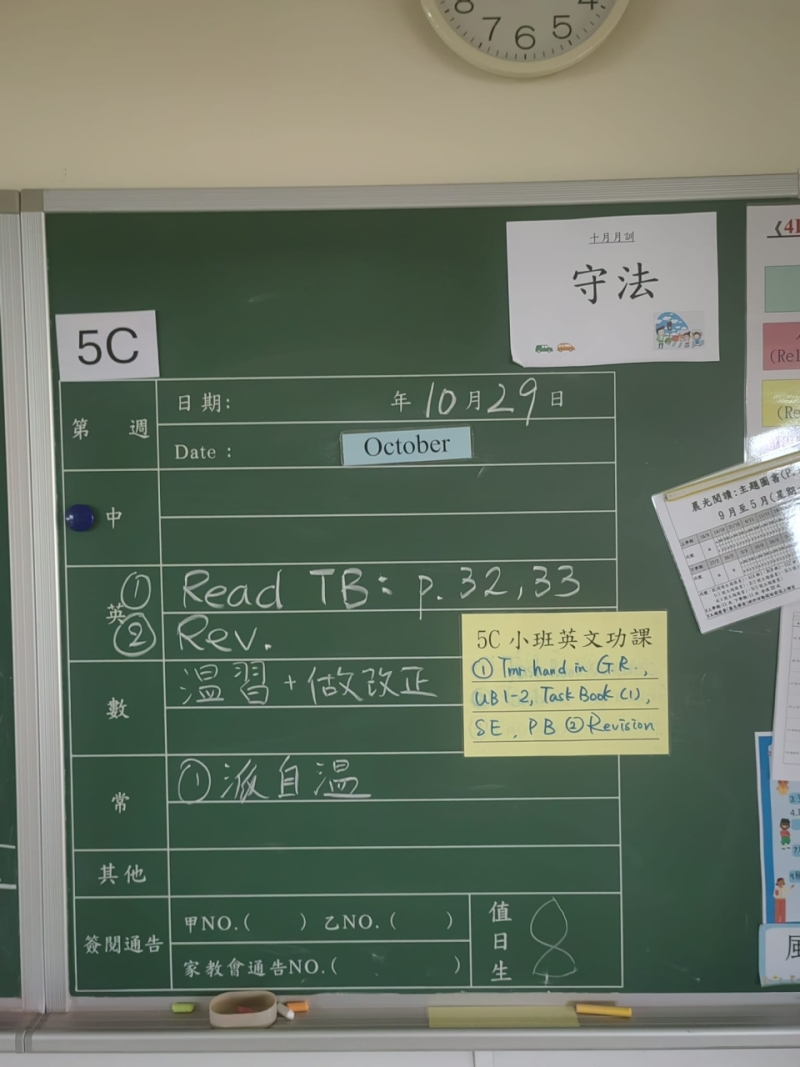 4
8 7 6 5
十月月訓
守法
5C
第 週
日期: 年 10 月 29 日
Date : October
中
英 ① Read TB: p. 32, 33
② Rev.
數 溫習 + 做改正
5C 小班英文功課
① Tmr hand in G.R.,
UB 1-2, Task Book (1),
SE, PB ② Revision
常 ① 派自溫
其他
簽閱通告 甲NO.( ) 乙NO.( )
家教會通告NO.( )
值日生 8
《4
(Rel
(Re
晨光閱讀:主題圖書(P.
9月至5月(星期
風